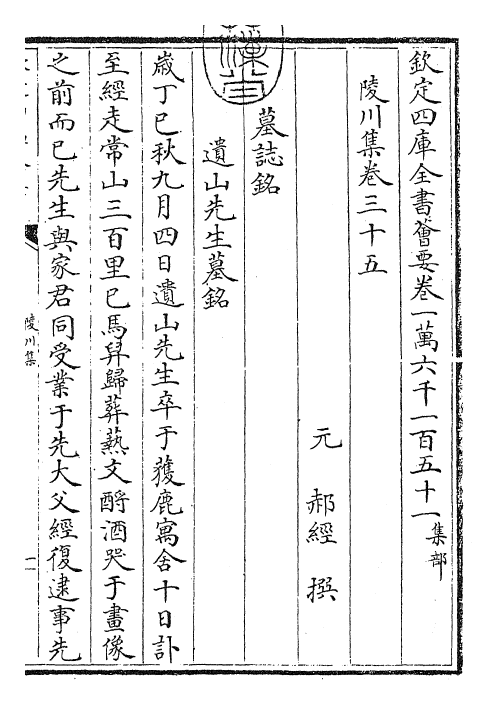 欽定四庫全書薈要卷一萬六千一百五十一集部
陵川集卷三十五
元 郝經 撰
墓誌銘
遺山先生墓銘
歲丁巳秋九月四日遺山先生卒于獲鹿寓舍十日訃
至經走常山三百里已馬舁歸葬爇文酹酒哭于畫像
之前而已先生與家君同受業于先大父經復逮事先
陵川集
一